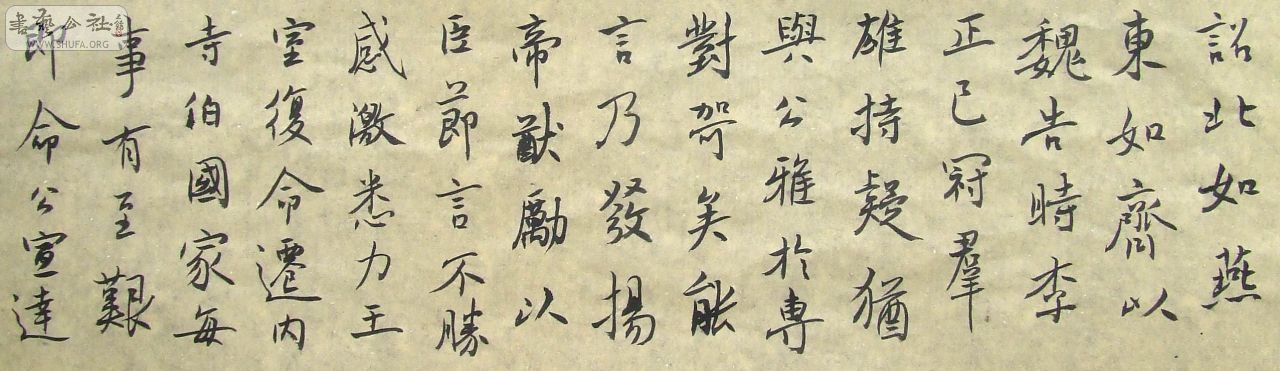 詔北如燕
東如齊以
魏告時李
正已冠羣
雄持疑猶
與公雅於專
對哿矣能
言乃發揚
帝猷勵以
臣節言不勝
感激悉力王
室復命遷內
寺伯國家每
事有至艱
即命公宣達
書藝公社
WWW.SHUFA.ORG